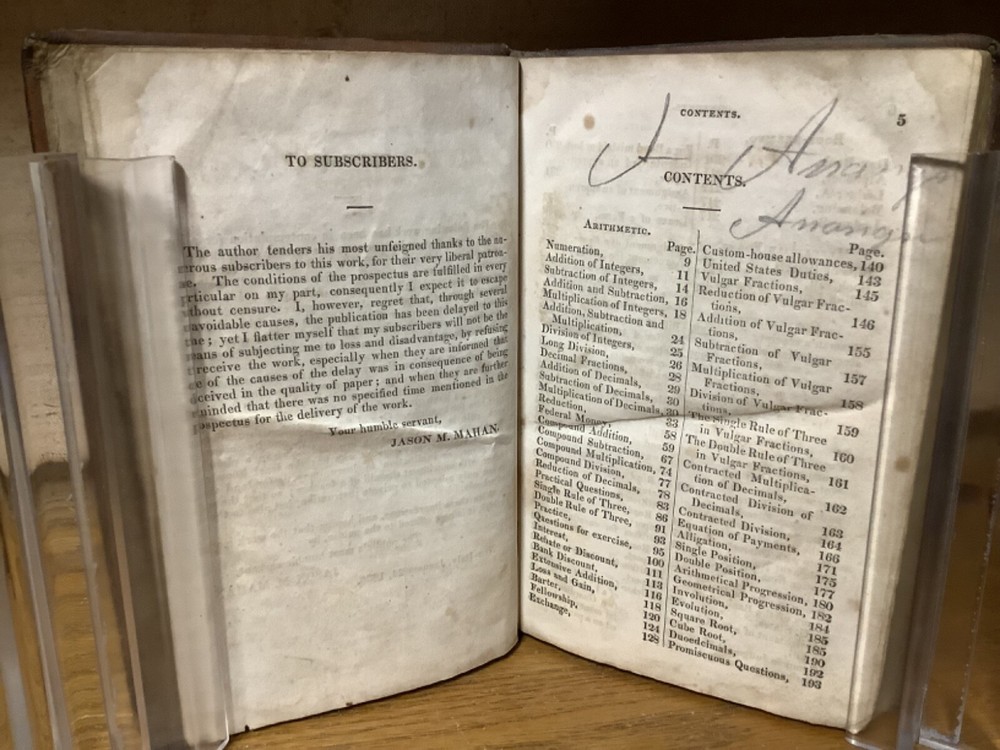 TO SUBSCRIBERS.
The author tenders his most unfeigned thanks to the nu-
merous subscribers to this work, for their very liberal patron-
The conditions of the prospectus are fulfilled in every
on my part, consequently I expect it to escape
without censure. I, however, regret that, through several
unavoidable causes, the publication has been delayed to this
yet I flatter myself that my subscribers will not be the
means of subjecting me to loss and disadvantage, by refusing
receive the work, especially when they are informed that
of the causes of the delay was in consequence of being
deceived in the quality of paper; and when they are further
that there was no specified time mentioned in the
prospectus for the delivery of the work.
Your humble servant,
JASON M. MAHAN.
CONTENTS. 5
CONTENTS.
ARITHMETIC.
Page.
Numeration, 9
Addition of Integers, 11
Subtraction of Integers, 14
Addition and Subtraction, 16
Multiplication of Integers, 18
Addition, Subtraction and
Multiplication, 24
Division of Integers, 25
Long Division, 26
Decimal Fractions, 28
Addition of Decimals, 29
Subtraction of Decimals, 30
Multiplication of Decimals, 30
Reduction, 33
Federal Money, 58
Compound Addition, 59
Compound Subtraction, 67
Compound Multiplication, 74
Compound Division, 77
Reduction of Decimals, 78
Practical Questions, 83
Single Rule of Three, 86
Double Rule of Three, 91
Practice, 93
Questions for exercise, 95
Interest, 100
Rebate or Discount, 111
Bank Discount, 113
Extensive Addition, 116
Loss and Gain, 118
Barter, 120
Fellowship, 124
Exchange, 128
Page.
Custom-house allowances, 140
United States Duties, 143
Vulgar Fractions, 145
Reduction of Vulgar Frac-
tions, 146
Addition of Vulgar Frac-
tions, 155
Subtraction of Vulgar
Fractions, 157
Multiplication of Vulgar
Fractions, 158
Division of Vulgar Frac-
tions, 159
The Single Rule of Three
in Vulgar Fractions, 160
The Double Rule of Three
in Vulgar Fractions, 161
Contracted Multiplica-
tion of Decimals, 162
Contracted Division of
Decimals, 163
Contracted Division, 164
Equation of Payments, 166
Alligation, 171
Single Position, 175
Double Position, 177
Arithmetical Progression, 180
Geometrical Progression, 182
Involution, 184
Evolution, 185
Square Root, 185
Cube Root, 190
Duodecimals, 192
Promiscuous Questions, 193